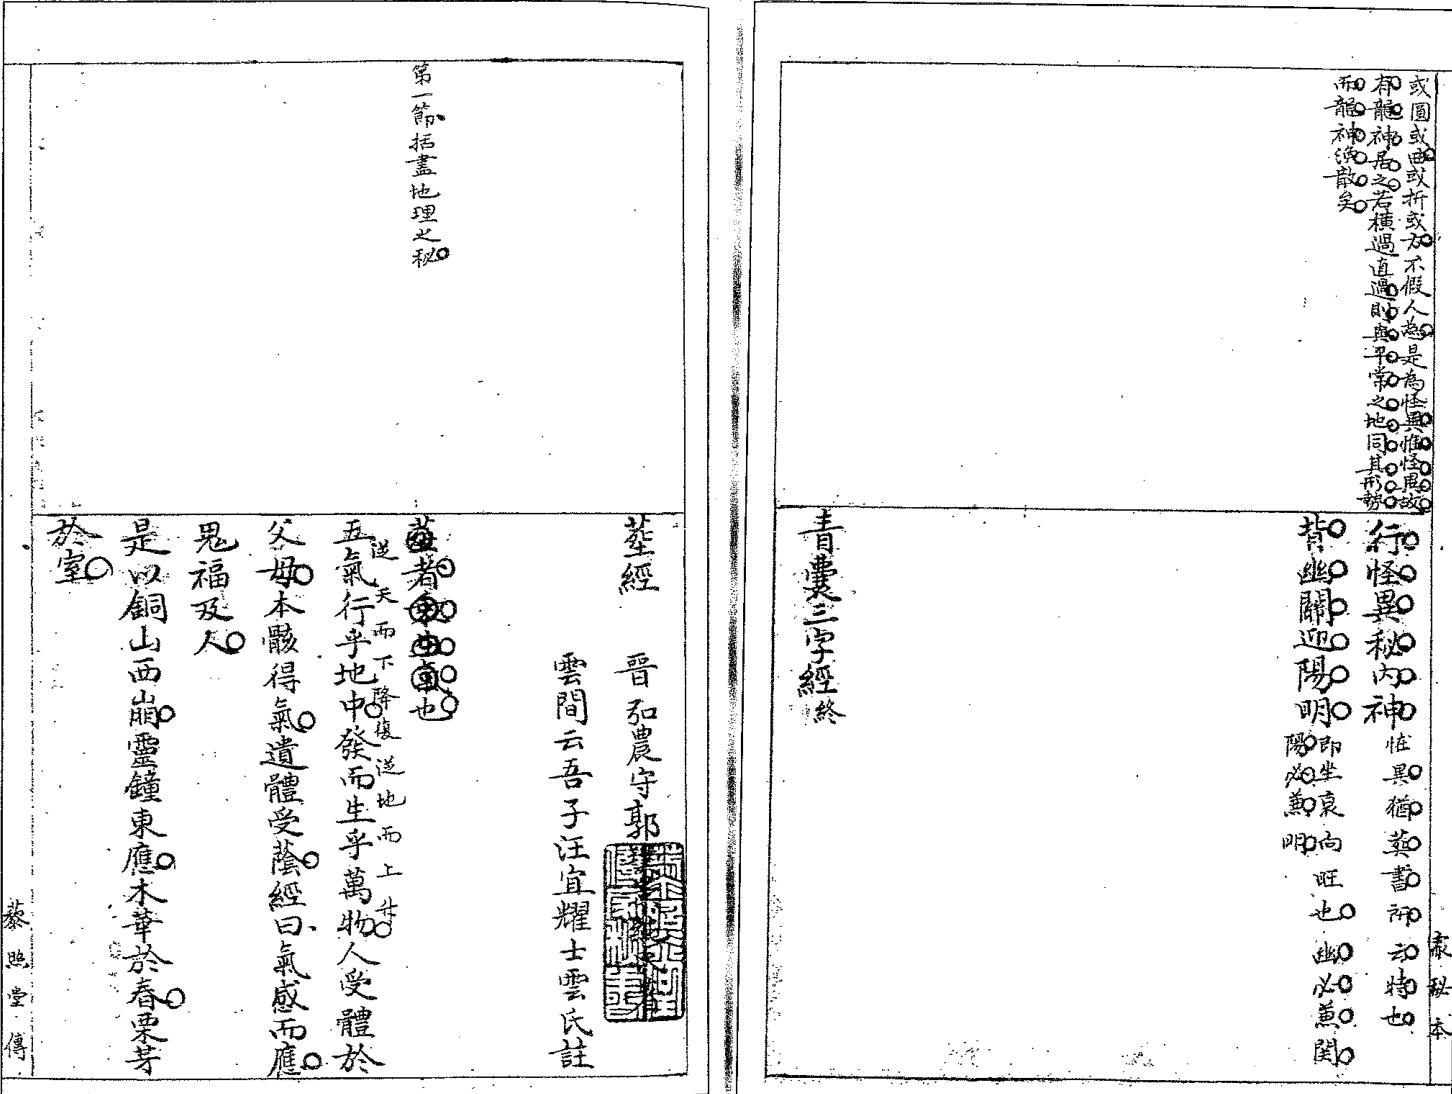 或圓或曲或折或方不假人為是為怪異惟怪異故
有龍神居之若橫過直過則與平常之地同其形勢
而龍神渙散矣
行怪異秘內神
怪異猶葬書所云特也
背幽關迎陽明
即坐衰向旺也幽必蕙関
陽必蕙明
青囊三字經終
家秘本
葬經
晉弘農守郭
雲間云吾子汪宜耀士雲氏註
第一節括盡地理之秘
葬者乘生氣也
從天而下降復從地而上升
五氣行乎地中發而生乎萬物人受體於
父母本骸得氣遺體受蔭經曰氣感而應
鬼福及人
是以銅山西崩靈鐘東應木華於春栗芽
於室
藜照堂傳